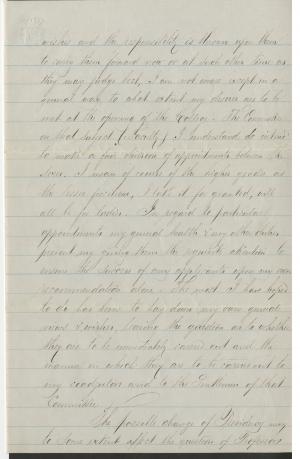 wishes and the responsibility is thrown upon them
to carry them forward now or at such other time as
they may judge best, I am not aware except in a
general way to what extent my desires are to be
met at the opening of the College. The Committee
on that subject (Faculty) I understand do intend
to make a fair division of appointments between the
sexes. I mean of course of the higher grades as
the lesser positions, I take it for granted, will
all be for ladies. In regard to particular
appointments my general health & my other duties
prevent my giving them the requisite attention to
ensure the success of any applicants upon my own
recommendation alone. The most I have hoped
to do has been to lay down my own general
views & wishes, leaving the question as to whether
they are to be immediately carried out and the
manner in which they are to be
my coadjutors and to the Gentlemen of that
Committee.
The possible change of Presidency may
to some extent affect the question of Professors